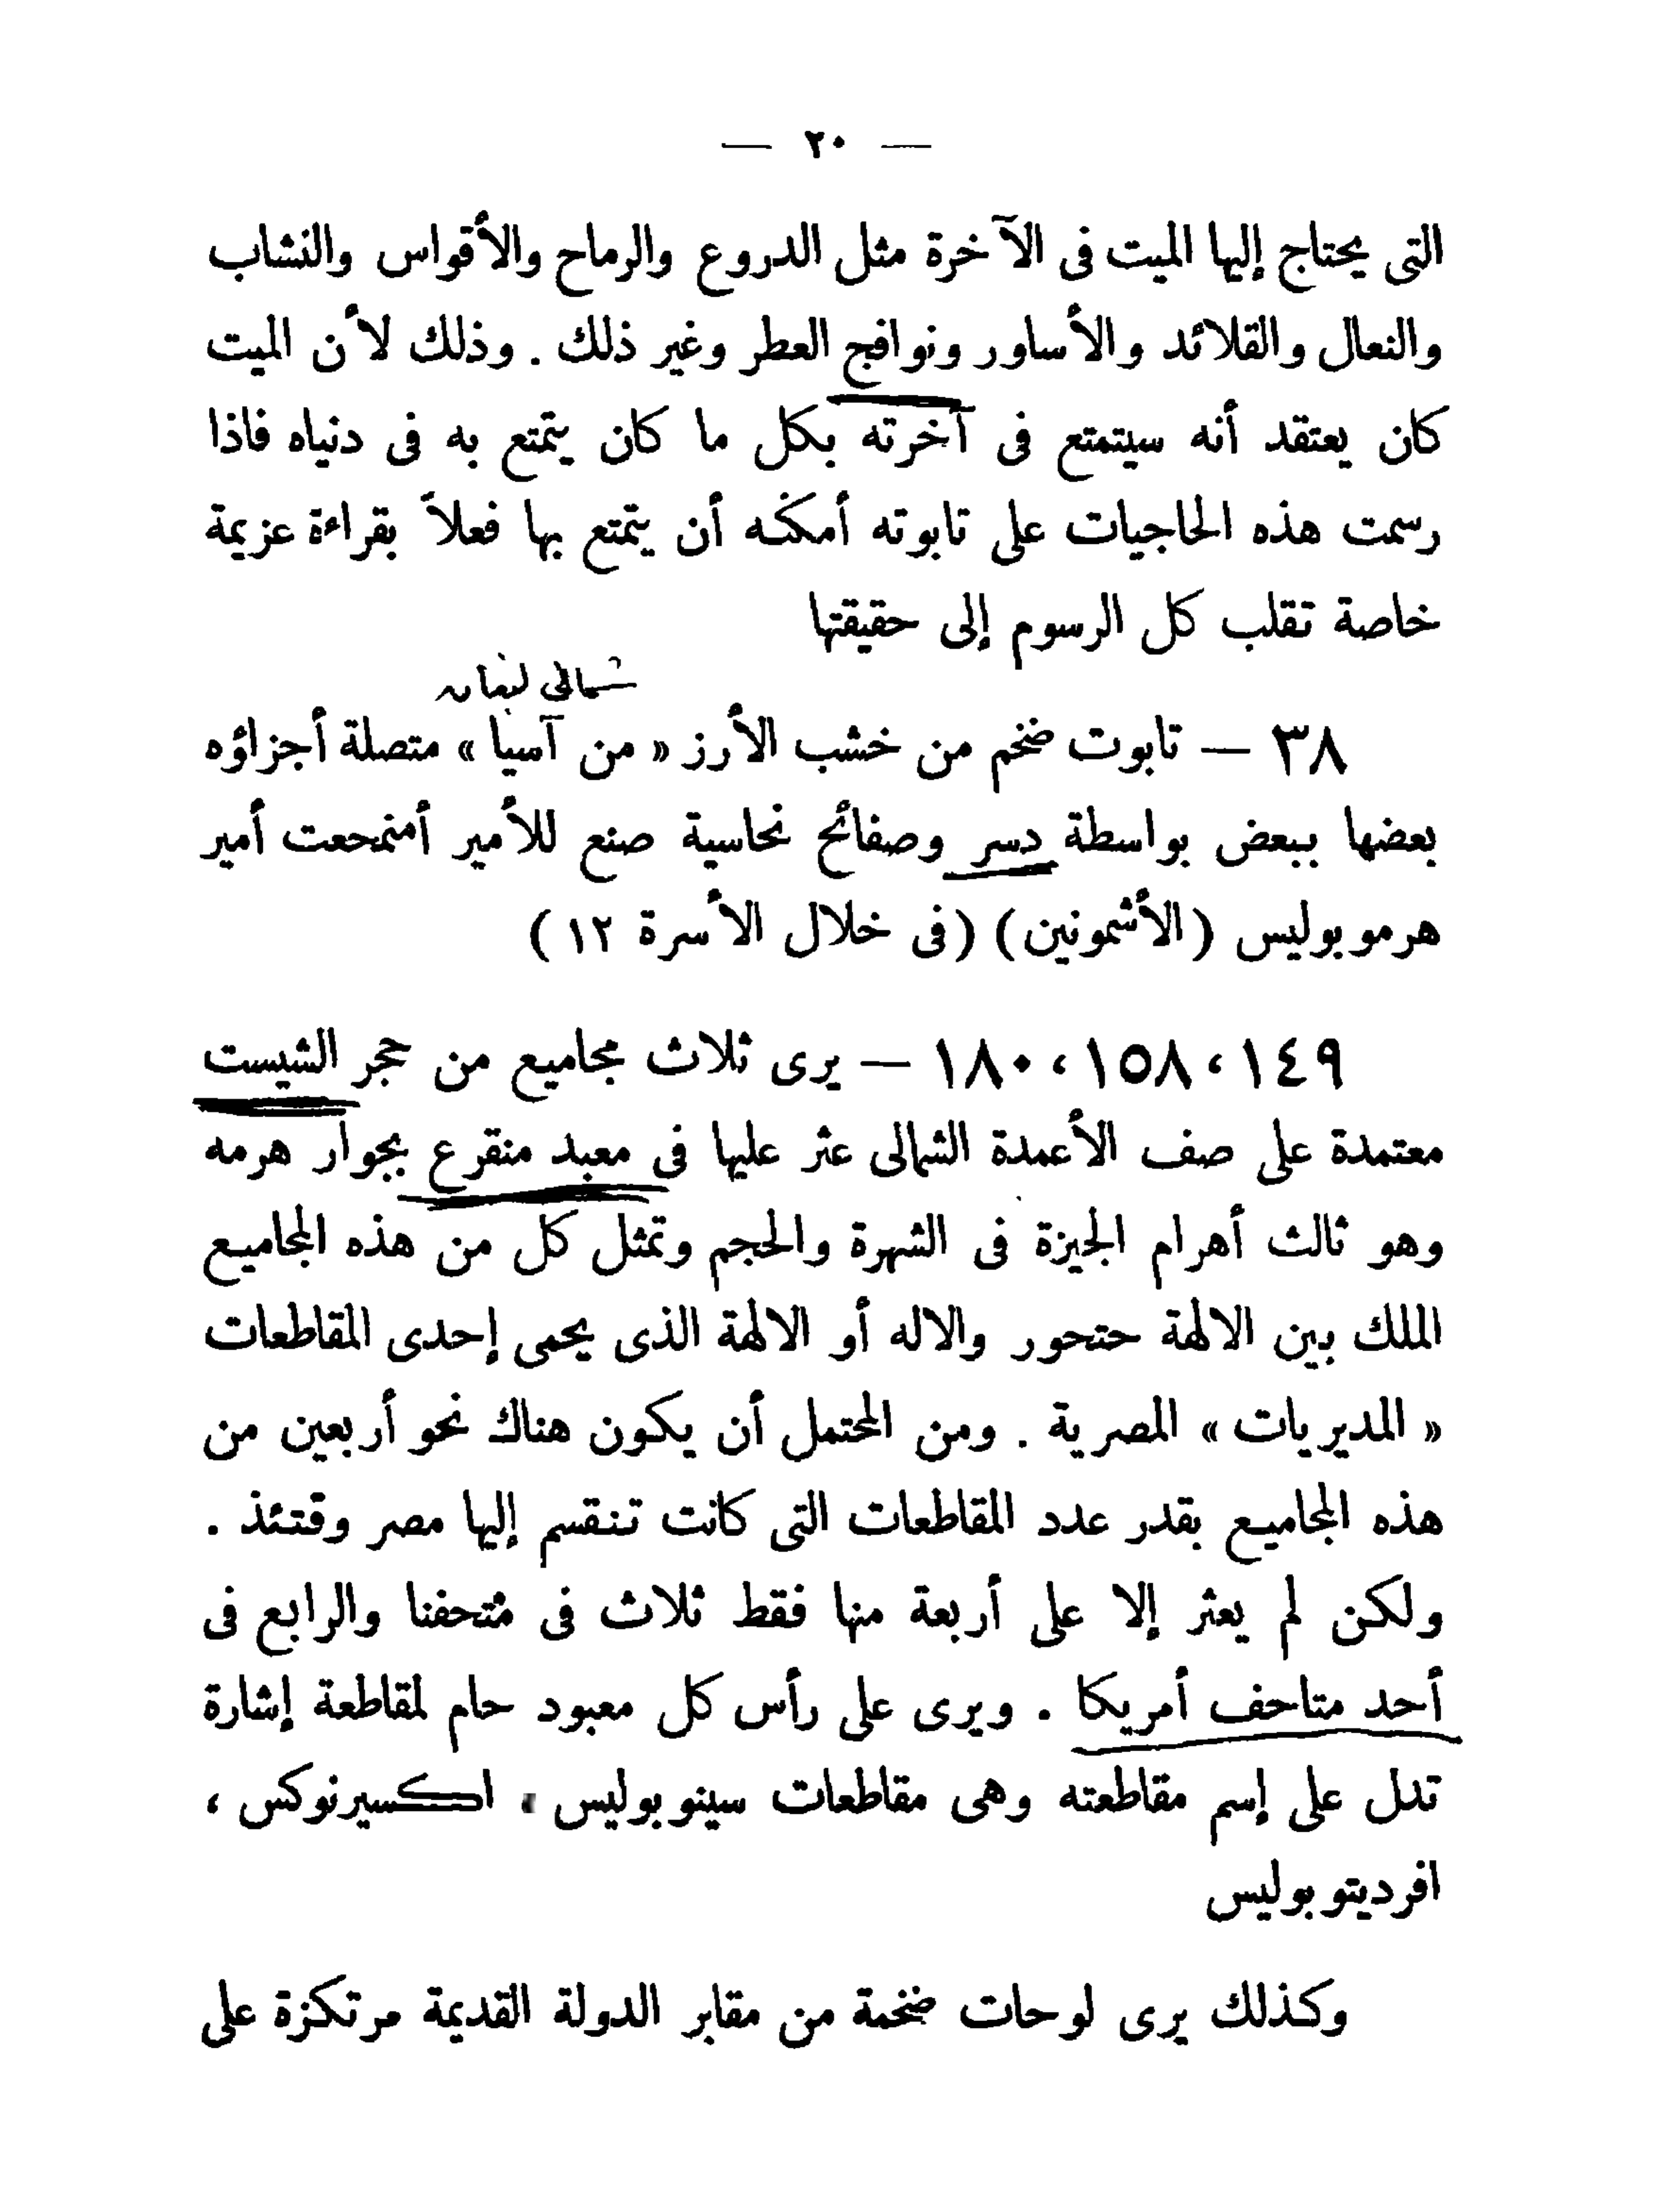 — ٢٠ —
التى يحتاج إليها الميت فى الآخرة مثل الدروع والرماح والأقواس والنشاب
والنعال والقلائد والأساور ونوافج العطر وغير ذلك . وذلك لأن الميت
كان يعتقد أنه سيتمتع فى آخرته بكل ما كان يتمتع به فى دنياه فاذا
رسمت هذه الحاجيات على تابوته أمكنه أن يتمتع بها فعلاً بقراءة عزيمة
خاصة تقلب كل الرسوم إلى حقيقتها
شمالي لبنان
٣٨ — تابوت ضخم من خشب الأرز « من آسيا » متصلة أجزاؤه
بعضها ببعض بواسطة دسر وصفائح نحاسية صنع للأمير أمنمحعت أمير
هرموبوليس (الأشمونين) (فى خلال الأسرة ١٢)
١٤٩ ، ١٥٨ ، ١٨٠ — يرى ثلاث مجاميع من حجر الشيست
معتمدة على صف الأعمدة الشمالى عثر عليها فى معبد منقرع بجوار هرمه
وهو ثالث أهرام الجيزة فى الشهرة والحجم وتمثل كل من هذه المجاميع
الملك بين الالهة حتحور والاله أو الالهة الذى يحمى إحدى المقاطعات
« المديريات » المصرية . ومن المحتمل أن يكون هناك نحو أربعين من
هذه المجاميع بقدر عدد المقاطعات التى كانت تنقسم إليها مصر وقتئذ .
ولكن لم يعثر إلا على أربعة منها فقط ثلاث فى متحفنا والرابع فى
أحد متاحف أمريكا . ويرى على رأس كل معبود حام لمقاطعة إشارة
تدل على إسم مقاطعته وهى مقاطعات سينوبوليس ، اكسيرنوكس ،
افرديتوبوليس
وكذلك يرى لوحات ضخمة من مقابر الدولة القديمة مرتكزة على